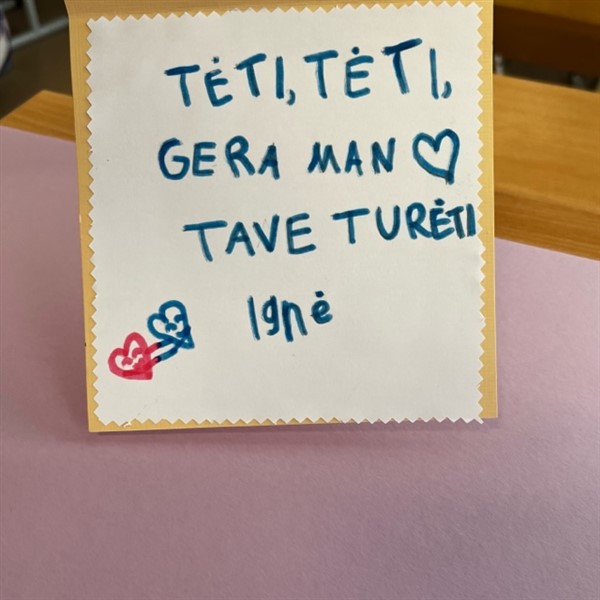 TĖTI, TĖTI,
GERA MAN ♡
TAVE TURĖTI
Ignė